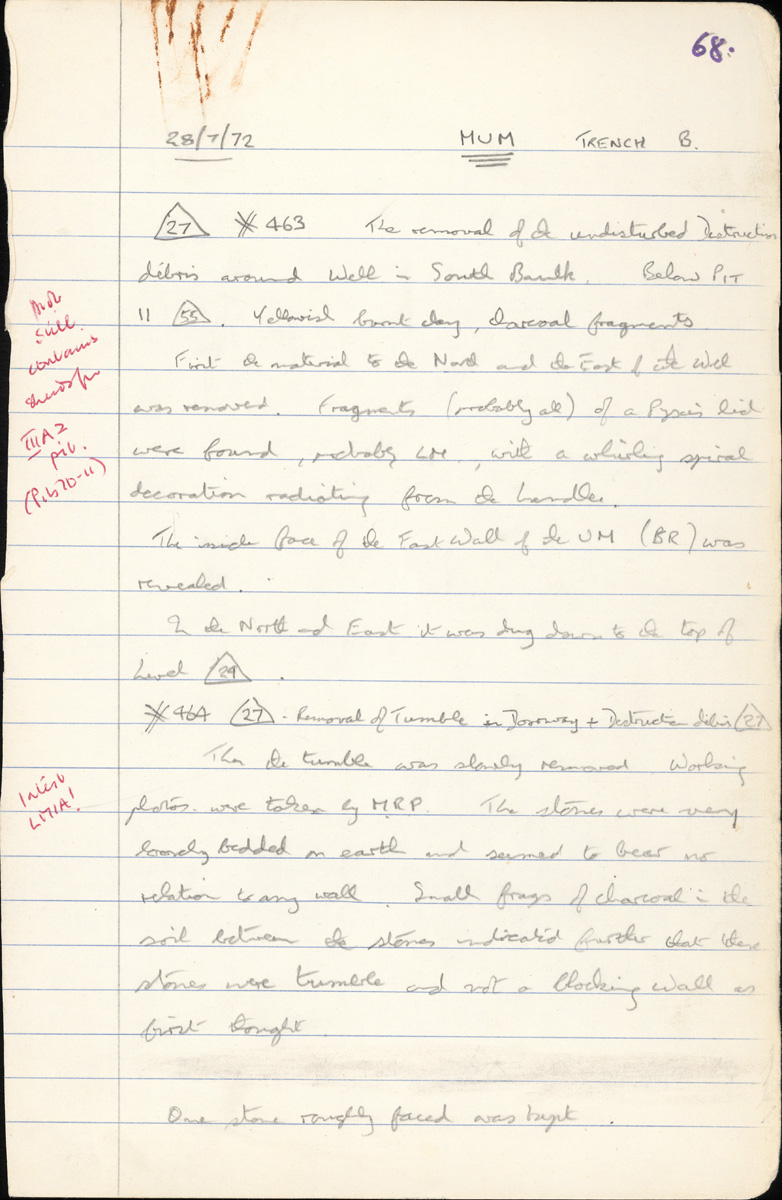 68.
28/7/72 MUM TRENCH B.
27 ※ 463 The removal of the undisturbed Destruction
débris around Well in South Baulk. Below PIT
11 55. Yellowish burnt clay, charcoal fragments
First the material to the North and the East of the Well
was removed. Fragments (probably all) of a Pyxis lid
were found, probably LM, with a whirling spiral
decoration radiating from the handle.
The inside face of the East Wall of the UM (BR) was
revealed.
In the North and East it was dug down to the top of
Level 29.
※ 464 27. Removal of Tumble in Doorway + Destruction débris 27
Then the tumble was slowly removed. Working
photos. were taken by MRP. The stones were very
loosely bedded on earth and seemed to bear no
relation to any wall. Small frags of charcoal in the
soil between the stones indicated further that these
stones were tumble and not a blocking wall as
first thought.
One stone roughly faced was kept.
still
contains
IIIA2
pit.
(Pits 10-11)
Latest
LMIA!